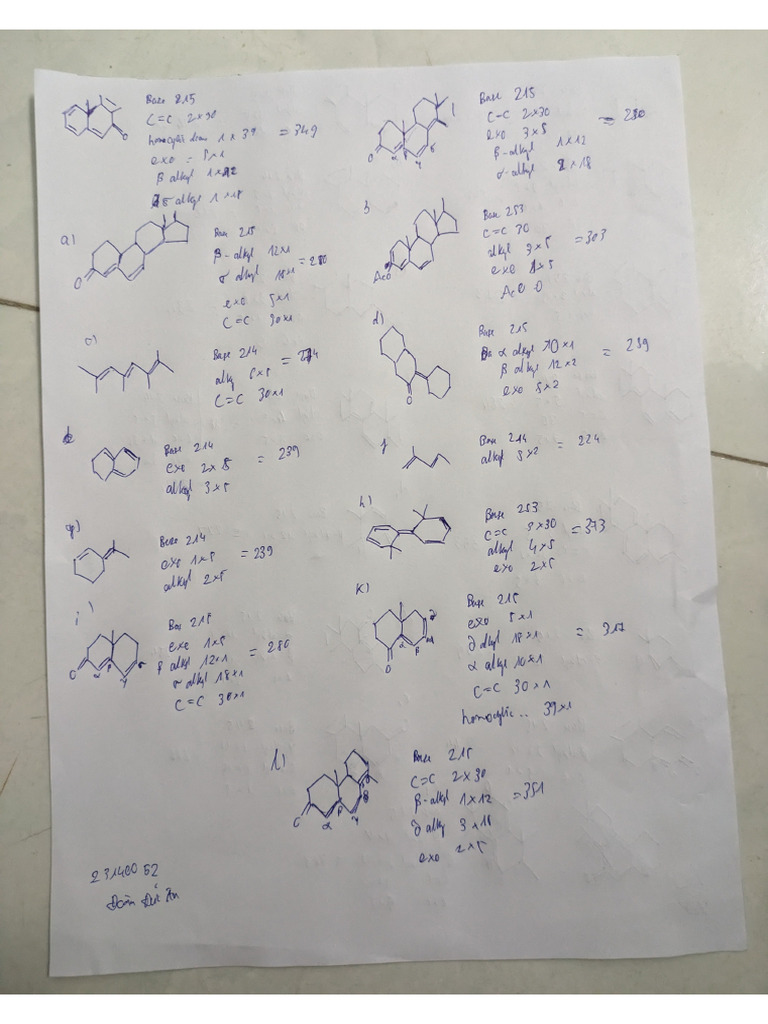 Base 215
C=C 2×30
homocyclic 1×39 = 349
exo = 5×1
β alkyl 1×12
δ alkyl 1×18
O
Base 215
C=C 2×30
exo 3×5 = 280
β-alkyl 1×12
α-alkyl ×18
O α β γ δ
a)
Base 215
β-alkyl 12×1
σ alkyl 18×1 = 280
exo 5×1
C=C 30×1
O
b
Base 253
C=C 30
alkyl 3×5 = 303
exo 1×5
AcO 0
AcO
c)
Base 214
alky 6×5 = 274
C=C 30×1
d)
Base 215
α alkyl 10×1
β alkyl 12×2 = 239
exo 5×2
O
Base 214
exo 2×5 = 239
alkyl 3×5
f
Base 214 = 224
alkyl 5×2
g)
Base 214
exo 1×5 = 239
alkyl 2×5
h)
Base 253
C=C 3×30
alkyl 4×5 = 373
exo 2×5
i)
Base 215
exo 1×5
β alkyl 12×1 = 280
σ alkyl 18×1
C=C 30×1
O α β γ σ
K)
Base 215
exo 5×1
∂ alkyl 18×1 = 317
α alkyl 10×1
C=C 30×1
homocyclic.. 39×1
O α β
l)
Base 215
C=C 2×30
β-alkyl 1×12 = 351
∂ alky 3×18
exo 2×5
O α β γ
23140052
Đoàn Đức An